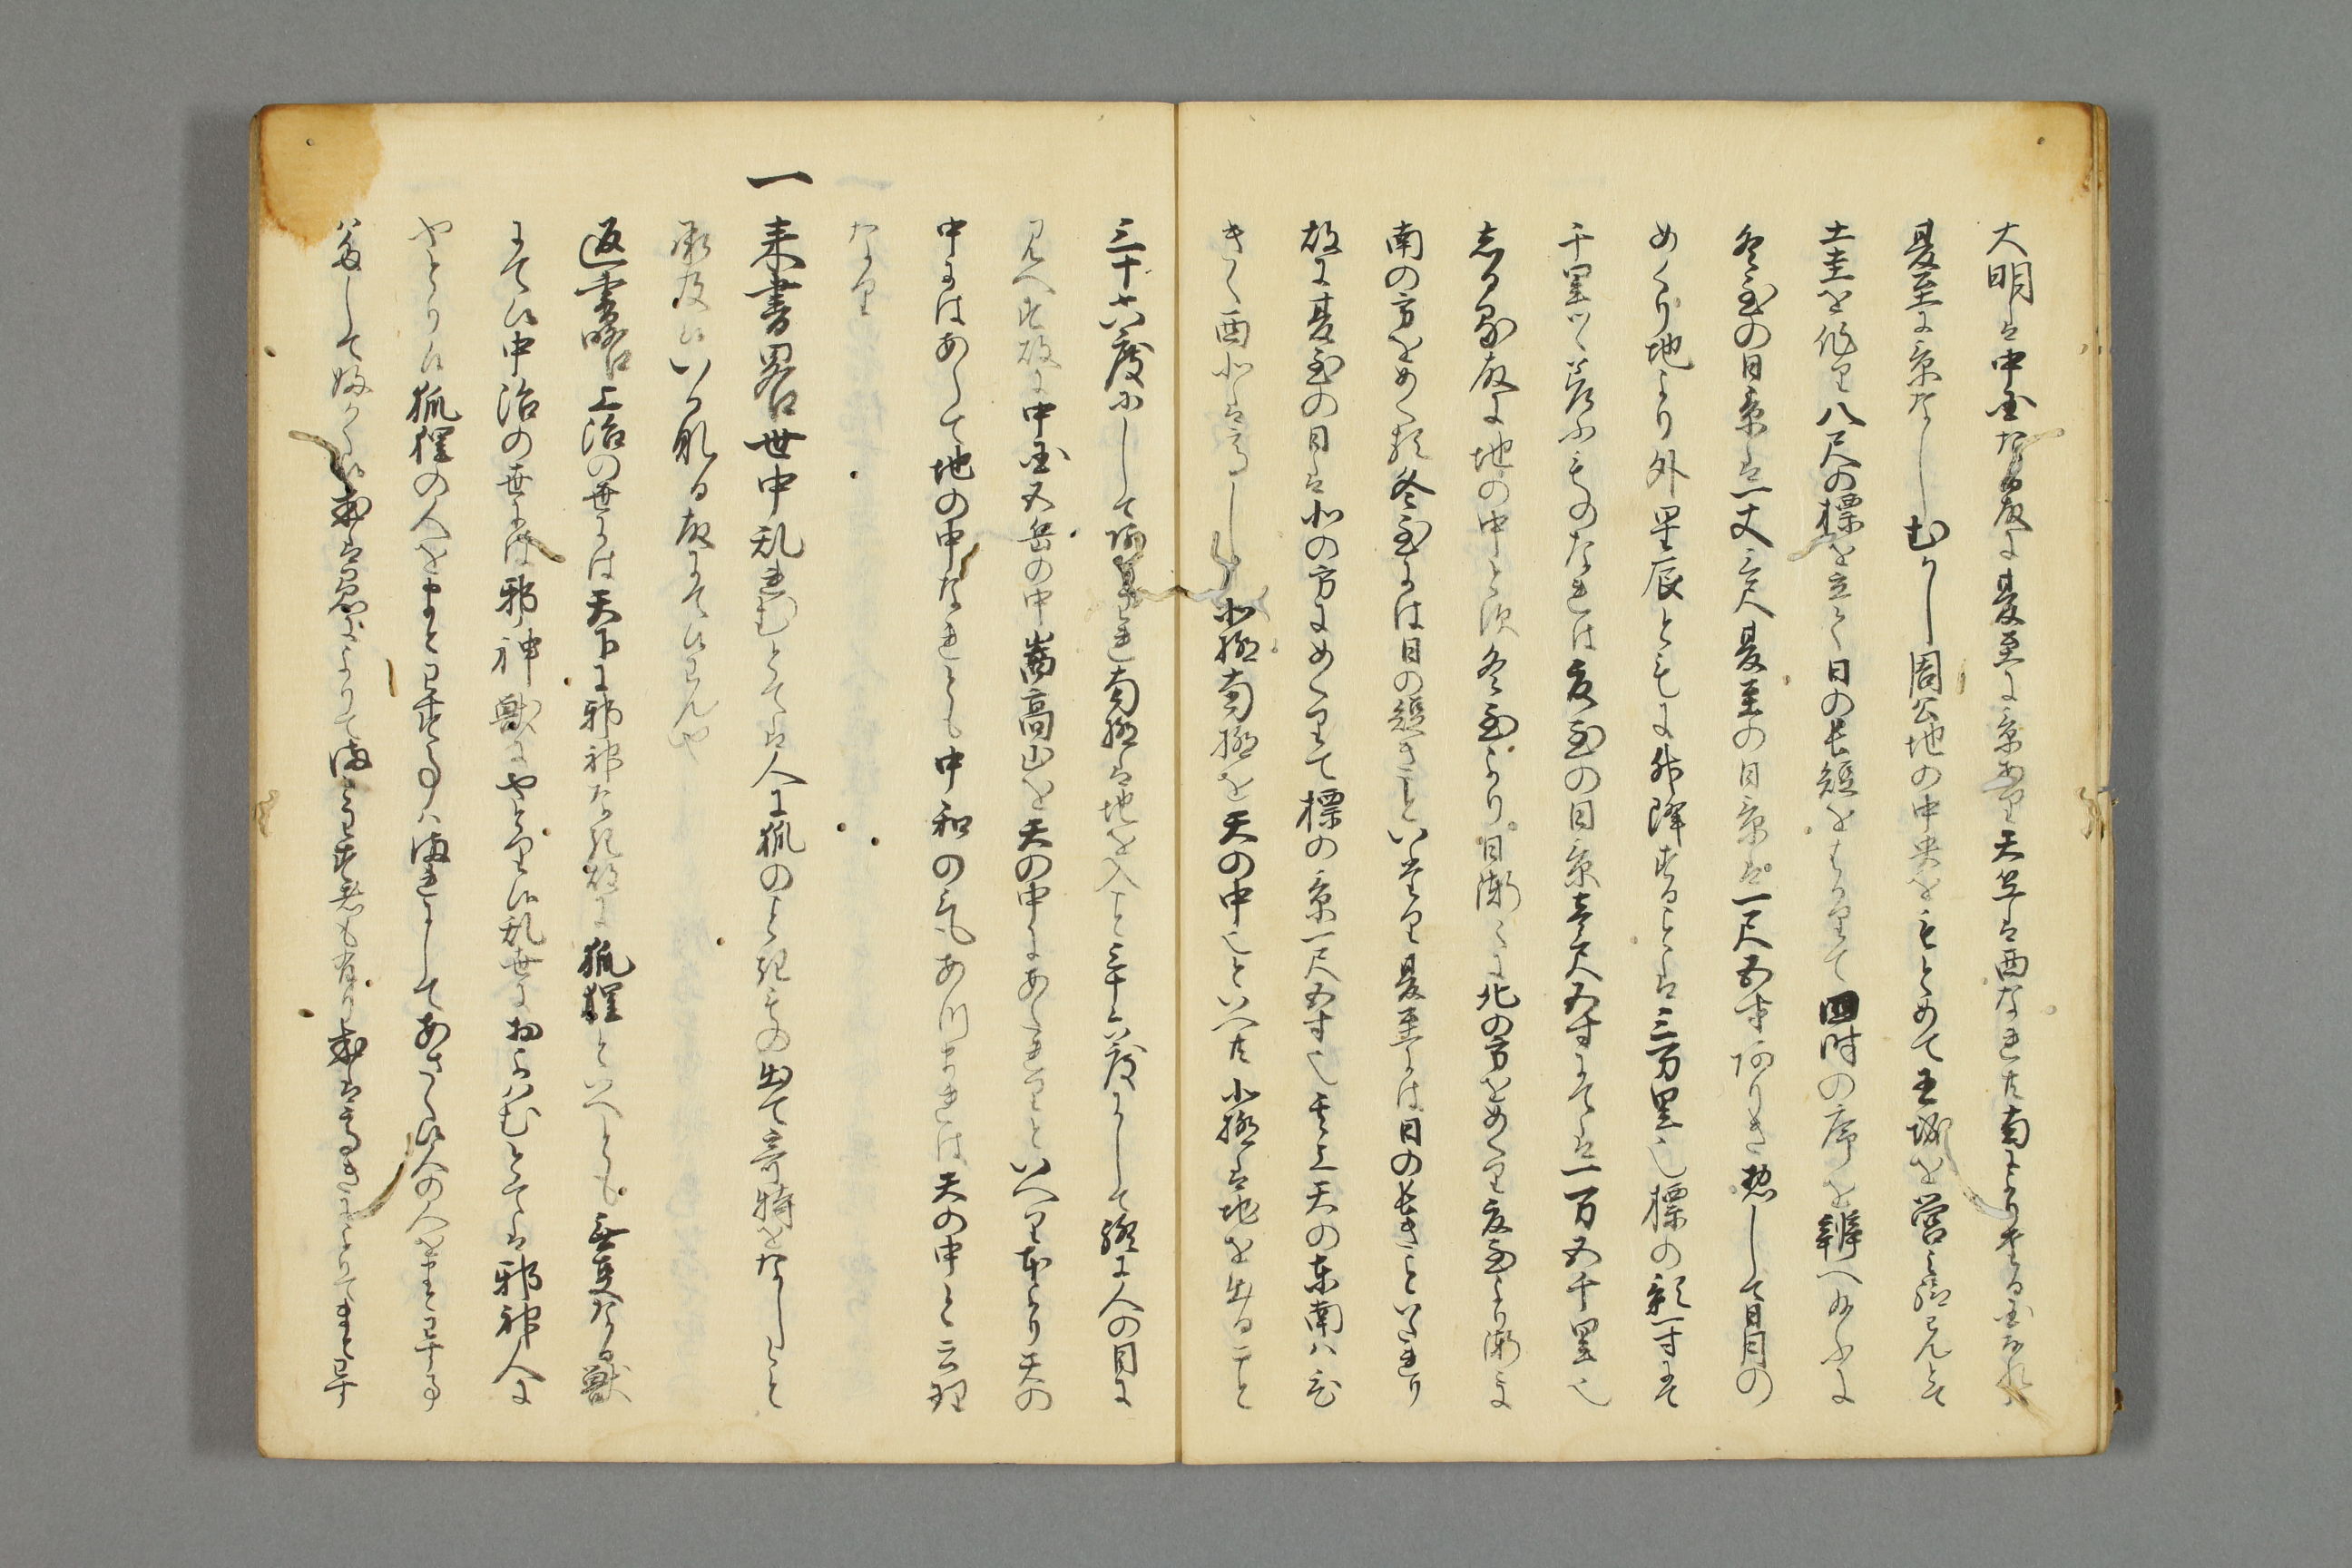 大明は中国なる故に夏至に景あり天竺は西なれ共南とりたる国なれハ
夏至に景なしむかし周公地の中央をもとめて王城を営み給ハんとて
土圭を作り八尺の標を立て日の長短をはかりて四時の序を辨へ給ふに
冬至の日景は一丈三尺夏至の日景は一尺五寸ありき惣して日月の
めくり地より外星辰ともに升降することは三万里也標の影一寸にて
千里つゝ差ふものなれは夏至の日景壱尺五寸にては一万五千里也
志る故に地の中と須冬至より日漸々に北の方をめくり夏至より漸に
南の方をめくる冬至には日の短きこといたり夏至には日の長きこといたれり
故に夏至の日は北の方にめくりて標の景一尺五寸也其上天の東南ハ
きく西北は高し北極南極を天の中也といへ共北極は地を出ること
三十六度にして南極は地を入こと三十六度にして終に人の目に
見へす故に中国五岳の中嵩高山を天の中にあたれりといへり本より天の
中にはあらて地の中なれとも中和の気あつまれは天の中と云理
なり
一 来書畧世中乱れむとては人に狐のとり付もの出て奇特をなしなと
承及ひいか成故にて候はんや
返書畧上治の世には天下に邪神なき故に狐狸といへとも無事なる獣
にて候中治の世には邪神獣にやとり候乱世におよハむとては邪神人に
やとり候狐狸の人をまとはす事ハまれにしてあさく候人の人をまとはす事
ハ多して深く候或は愚によりてまとはす者も有り或は高きによりてまとはす